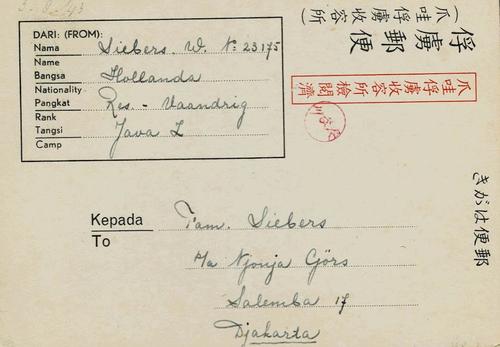 3-8-43
DARI: (FROM):
Nama Siebers. W. No: 23175
Name
Bangsa Hollanda
Nationality
Pangkat Res. - Vaandrig
Rank
Tangsi Java I
Camp
Kepada Fam. Siebers
To
p/a Njonja Görs
Salemba 17
Djakarta
俘虜郵便
(爪哇俘虜收容所)
爪哇俘虜收容所檢閲濟
きがは便郵